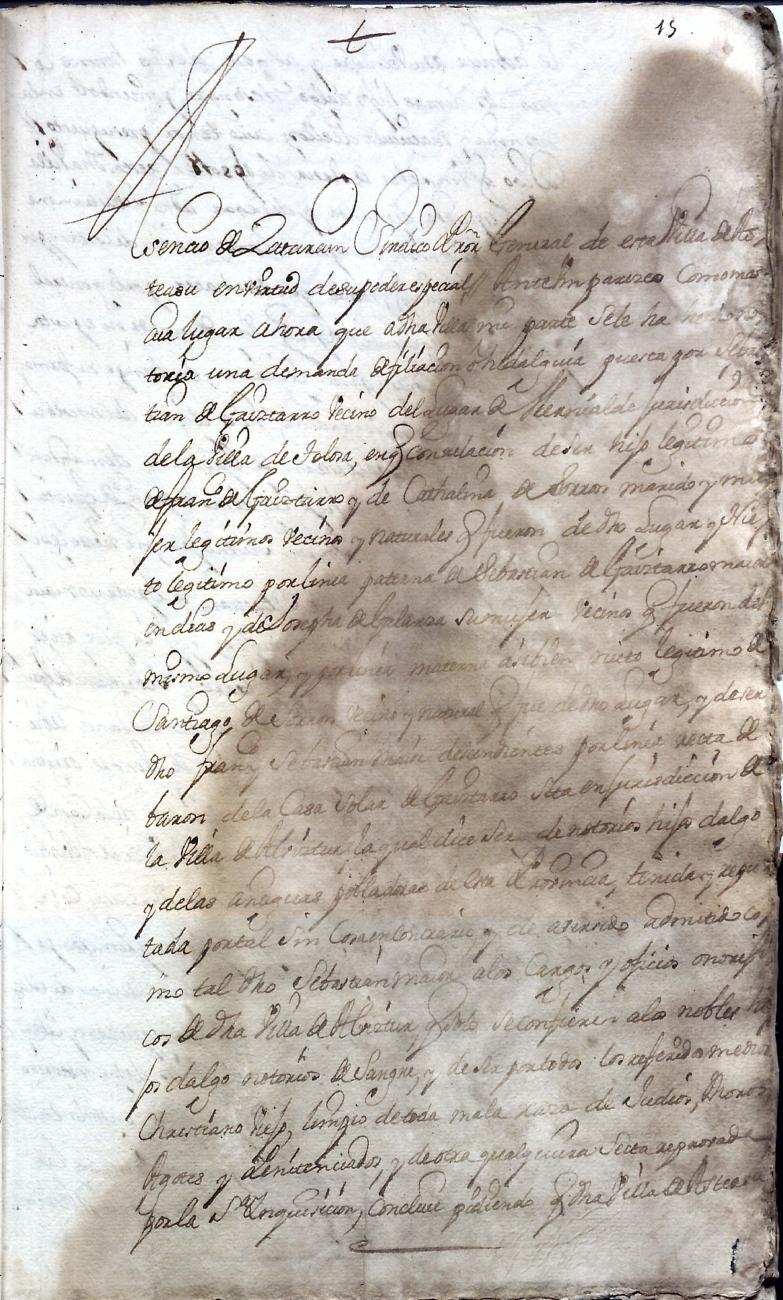 15
Asencio de Zatarain Sindico Pror General de esta Villa de As
teasu en virtud de su poder especial Ante Vm parezco Como mas
aia lugar ahora que a dha Villa mi parte se le ha
toria una demanda de filiacion e hidalguia puesta por Sebas
tian de Guiztarro Vecino del Lugar de jurisdiccion
de la Villa de Tolosa, en q Con relacion de ser hijo legitimo
de Franco de Guiztarro y de Cathalina de marido y mu
jer legitimos vecinos y naturales q fueron de dho Lugar y Nie
to legitimo por linia paterna de Sebastian de Guiztarro maior
en dias y de Josepha de su mujer Vecinos q fueron del
mismo Lugar, y por linia materna asibien nieto legitimo de
Santiago de Vecino y natural q fue de dho Lugar, y de ser
dho Franco y Sebastian maior descendientes por linia recta de
baron de la Casa Solar de Guiztarro sita en jurisdiccion de
la Villa de Albiztur, la qual dice ser de notorios hijos dalgo
y de las antiguas pobladoras de esta Provincia, tenida y repu
tada por tal sin Cosa en Contrario y de aver sido admitido co
mo tal dho Sebastian maior a los Cargos y oficios onorifi
cos de dha Villa de Albiztur, q solo se confieren a los nobles hi
jos dalgo notorios de Sangre, y de ser por todos los referidos medios
Christiano Viejo, limpio de toda mala raza de Judios, Moros
Agotes y Penitenciados, y de otra qualquiera Secta reprovada
por la Sta Inquisicion, Concluie pidiendo q dha Villa de Asteasu